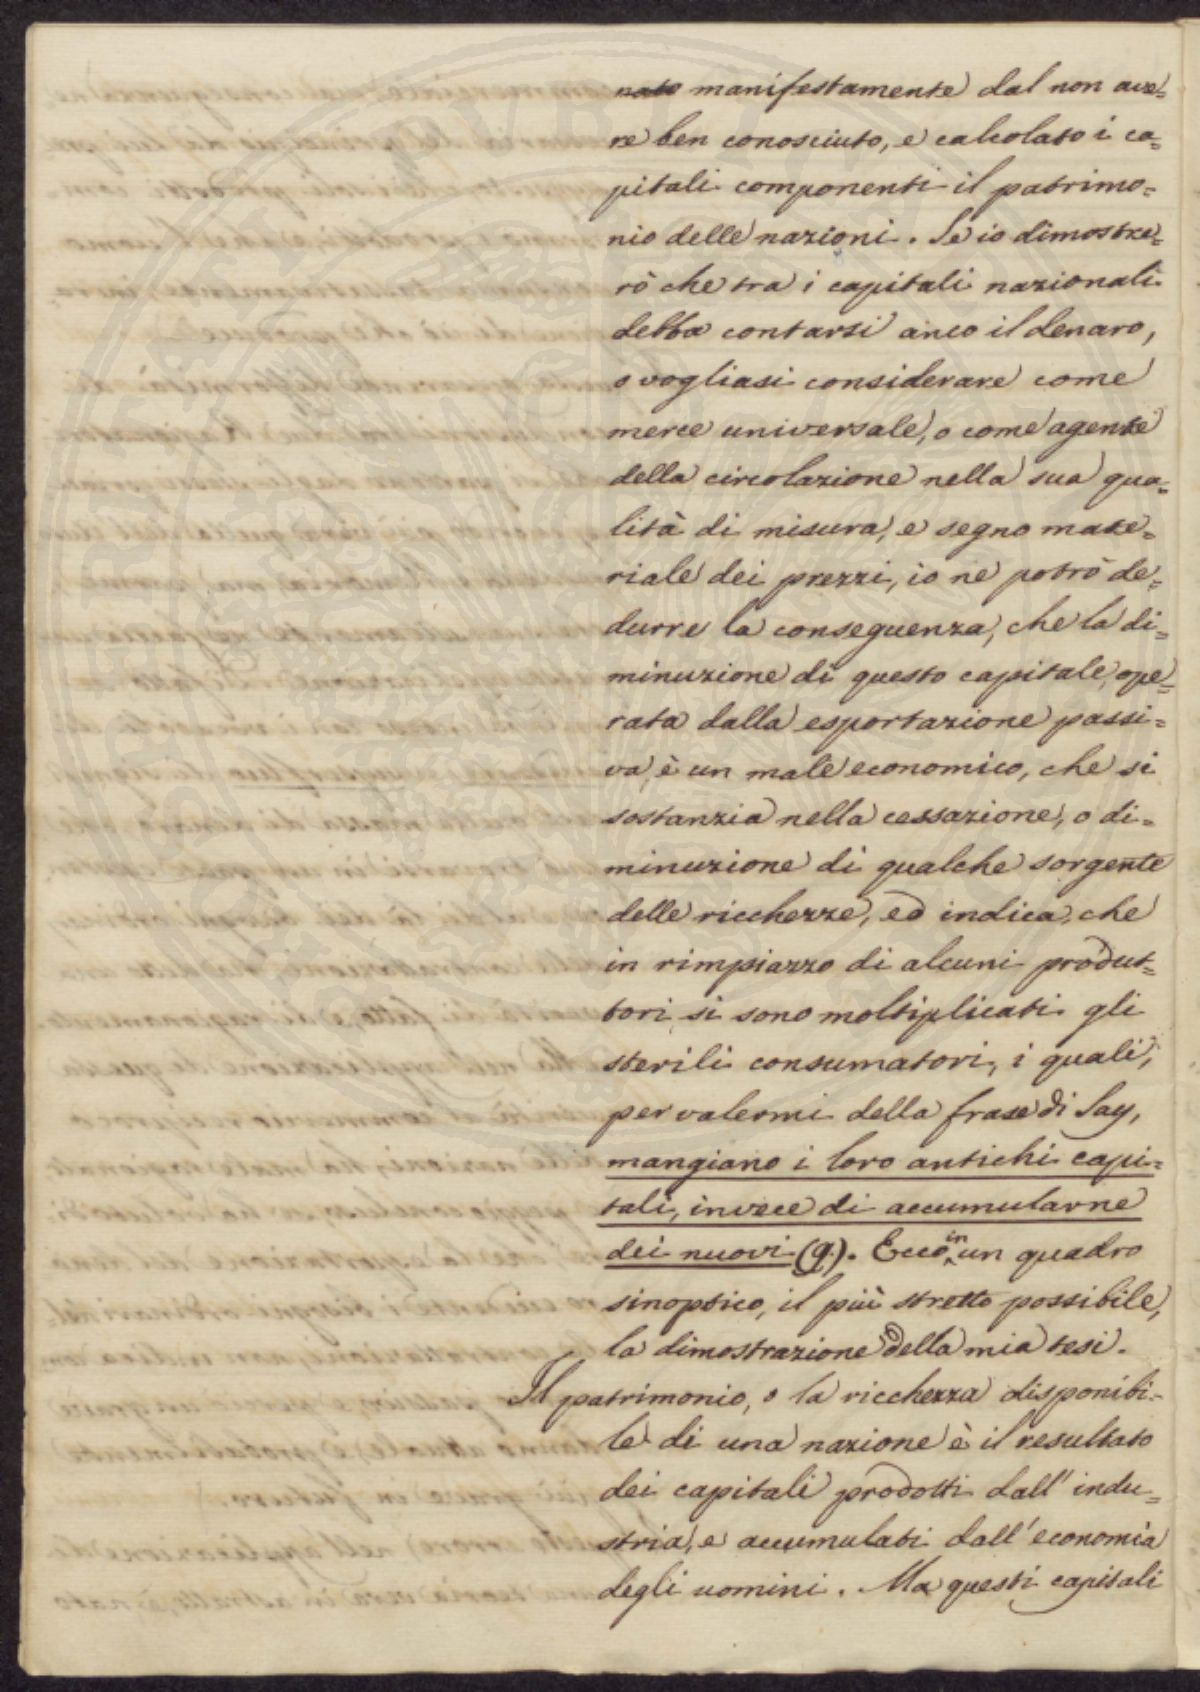 nato manifestamente dal non ave=
re ben conosciuto, e calcolato i ca=
pitali componenti il patrimo=
nio delle nazioni. Se io dimostre=
rò che tra i capitali nazionali
debba contarsi anco il denaro,
o vogliasi considerare come
merce universale, o come agente
della circolazione nella sua qua=
lità di misura, e segno mate=
riale dei prezzi, io ne potrò de=
durre la conseguenza, che la di=
minuzione di questo capitale, ope=
rata dalla esportazione passi=
va, è un male economico, che si
sostanzia nella cessazione, o di=
minuzione di qualche sorgente
delle ricchezze, ed indica, che
in rimpiazzo di alcuni produt=
tori si sono moltiplicati gli
sterili consumatori, i quali,
per valermi della frase di Say,
mangiano i loro antichi capi=
tali, invece di accumularne
dei nuovi (q). Ecco in un quadro
sinoptico, il più stretto possibile,
la dimostrazione della mia tesi.
Il patrimonio, o la ricchezza disponibi=
le di una nazione è il resultato
dei capitali prodotti dall' indu=
stria, e accumulati dall' economia
degli uomini. Ma questi capitali